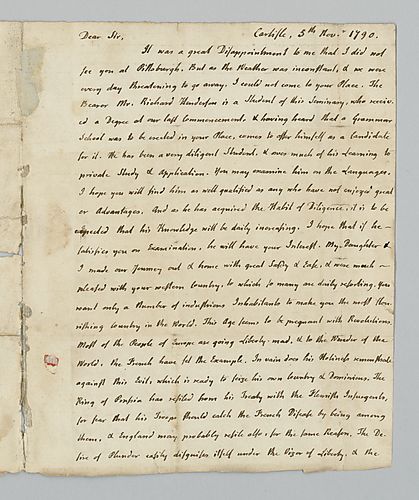 Dear Sir, Carlisle, 5th Nov.r 1790.
It was a great Disappointment to me that I did not
see you at Pittsburgh. But as the Weather was inconstant, & we were
every day threatening to go away, I could not come to your Place. The
Bearer Mr. Richard Henderson is a Student of this Seminary, who receiv-
ed a Degree at our last Commencement, & having heard that a Grammar
School was to be erected in your Place, comes to offer himself as a Candidate
for it. He has been a very diligent Student, & owes much of his Learning to
private Study & Application. You may examine him on the Languages.
I hope you will find him as well qualified as any who have not enjoyed great-
er Advantages. And as he has acquired the Habit of Diligence, it is to be
expected that his Knowledge will be daily increasing. I hope that if he
satisfies you on Examination, he will have your Interest. My Daughter &
I made our Journey out & home with great Safety & Ease, & were much
pleased with your western Country, to which so many are daily resorting. You
want only a Number of industrious Inhabitants to make you the most flou-
rishing Country in the World. This Age seems to be pregnant with Revolutions.
Most of the People of Europe are going Liberty-mad, & to the Wonder of the
World, the French have set the Example. In vain does his Holiness remonstrate
against this Evil, which is ready to seize his own Country & Dominions. The
King of Prussia has resiled from his Treaty with the Flemish Insurgents,
for fear that his Troops should catch the French Disease by being among
them, & England may probably resile also, for the same Reason. The De-
sire of Plunder easily disguises itself under the Vizor of Liberty, & the